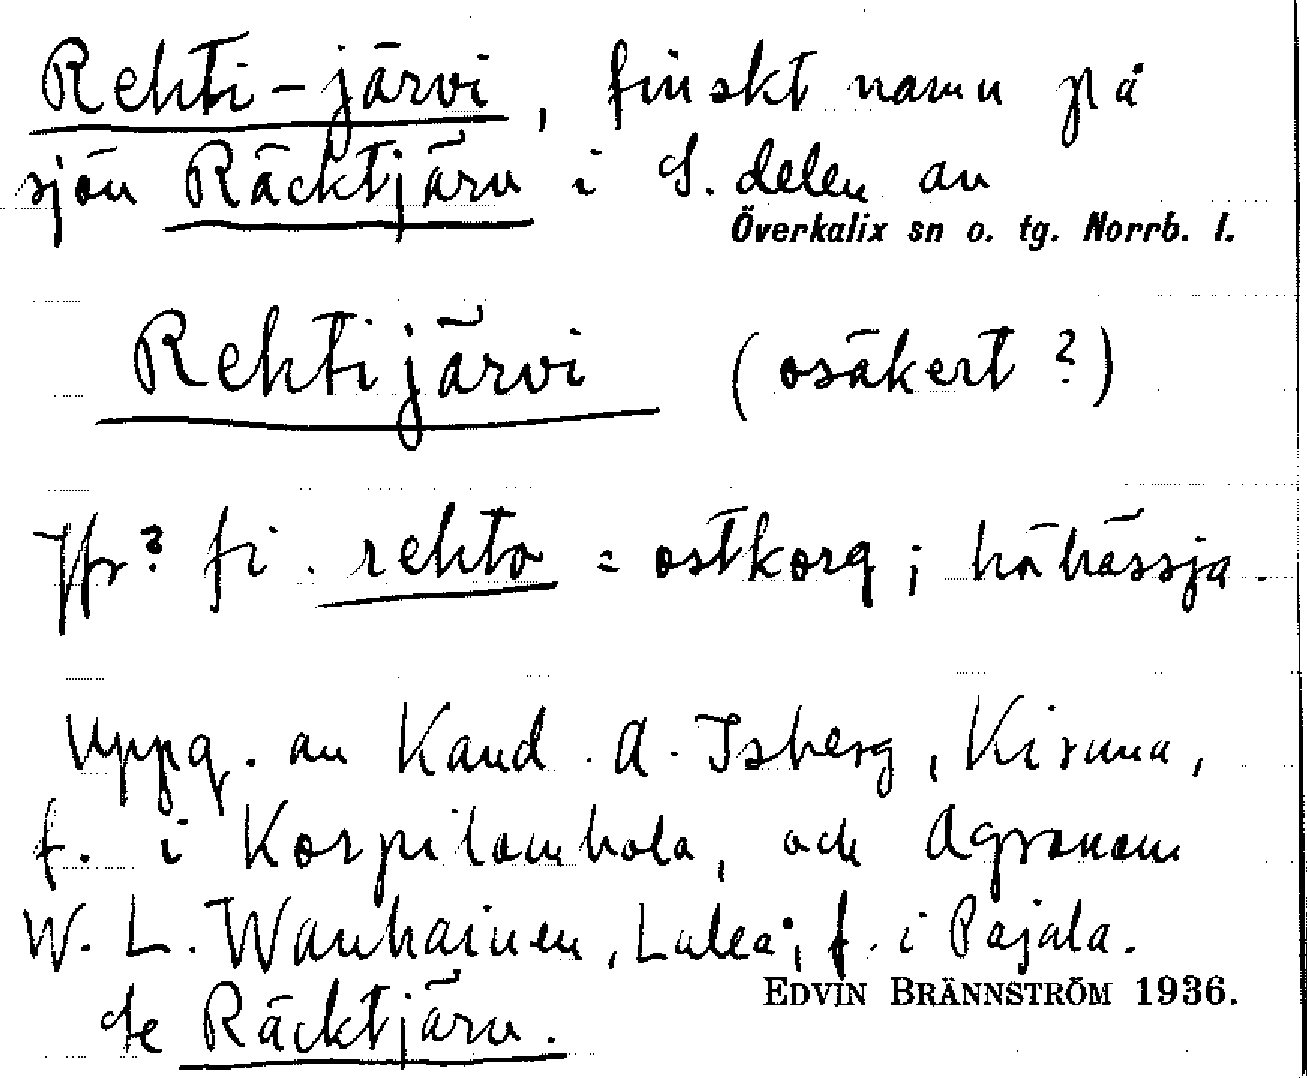 Rehti-järvi, finskt namn på
sjön Räcktjärv i S. delen av
Överkalix sn o. tg. Norrb. l.
Rehtijärvi (osäkert?)
Jfr? fi. rehto = ostkorg; håhässja.
Uppg. av Kand. A. Isberg, Kiruna,
f. i Korpilombolo, och Agronom
W. L. Wanhainen, Luleå; f. i Pajala.
EDVIN BRÄNNSTRÖM 1936.
Se Räcktjärv.